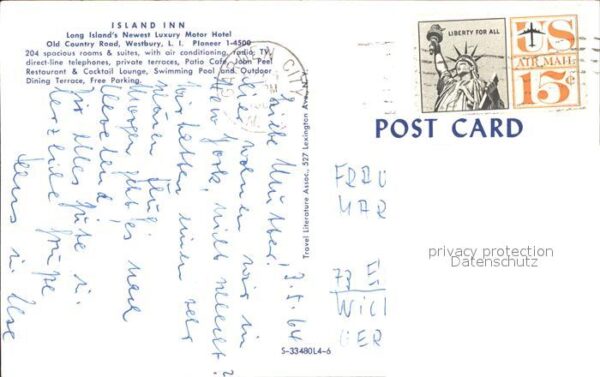 ISLAND INN
Long Island's Newest Luxury Motor Hotel
Old Country Road, Westbury, L. I. Pioneer 1-4500
204 spacious rooms & suites, with air conditioning, radio, TV,
direct-line telephones, private terraces, Patio Cafe, John Peel
Restaurant & Cocktail Lounge, Swimming Pool and Outdoor
Dining Terrace, Free Parking.
LIBERTY FOR ALL
US
AIR MAIL
15¢
POST CARD
Travel Literature Assoc., 527 Lexington Ave., N.Y.
3.5.64
Liebe Mutter!
wohnen wir in
New York, nicht schlecht?
Wir hatten einen sehr
Flug
Morgen geht es nach
Cleveland,
für Alles Gute in
herzliche Grüße
FRAU
MAR
73 E
WILL
GER
privacy protection
Datenschutz
S-33480L4-6